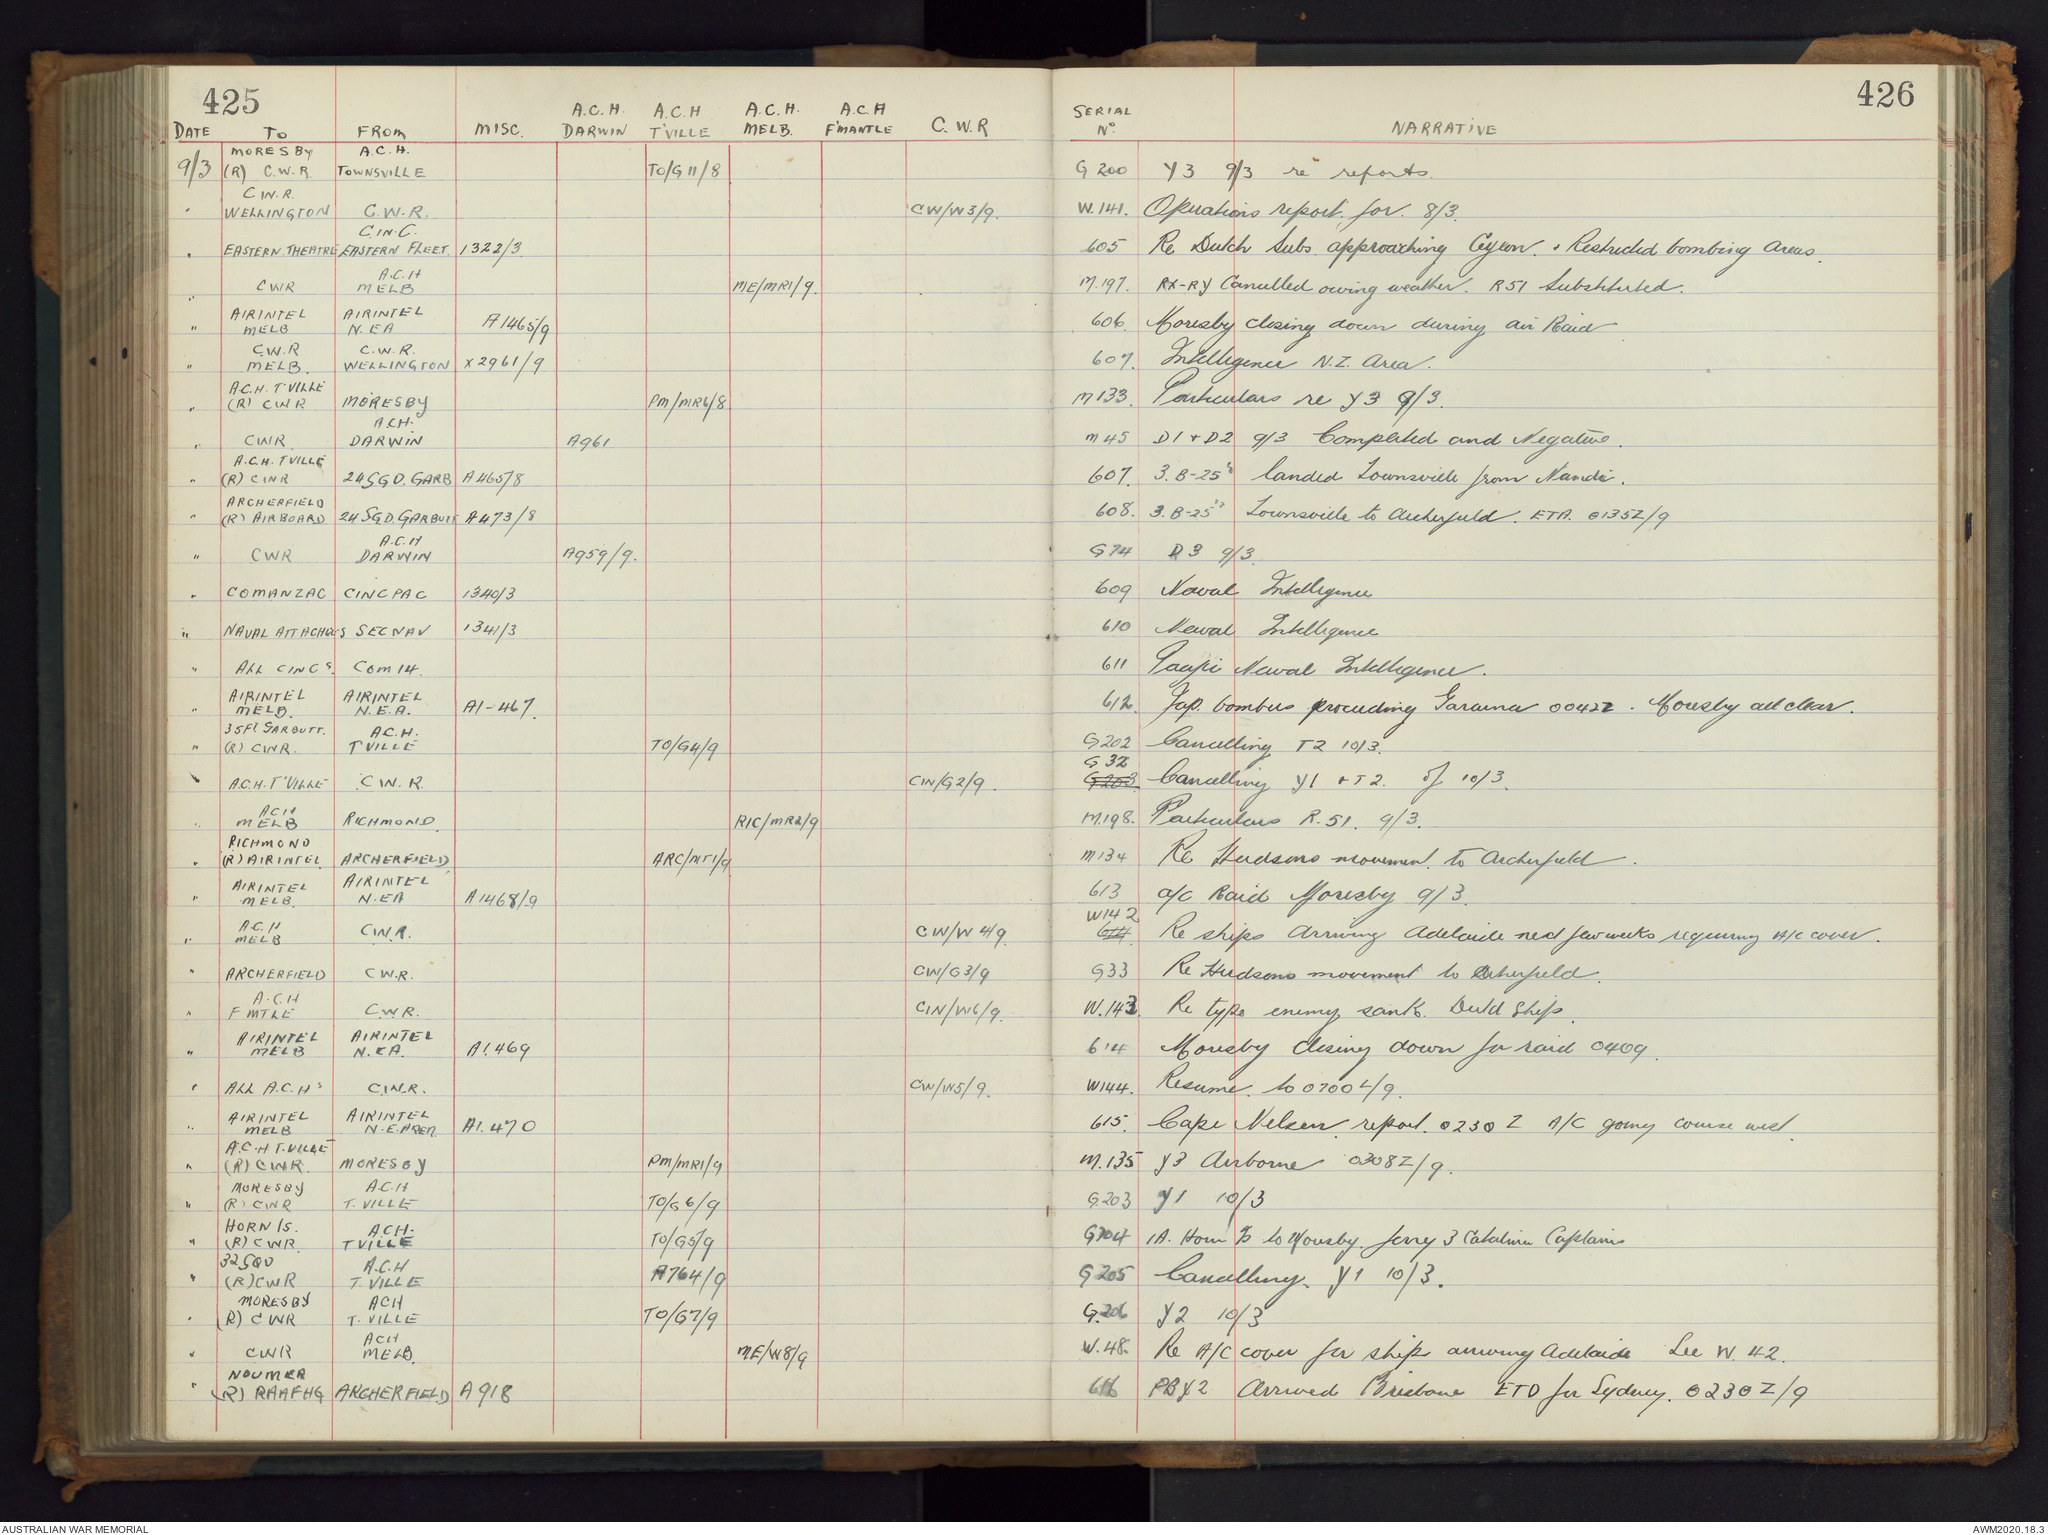 425
426
A.C.H. A.C.H A.C.H. A.C.H SERIAL
DATE TO FROM MISC. DARWIN T'VILLE MELB. F'MANTLE C.W.R Nº NARRATIVE
MORESBY A.C.H.
9/3 (R) C.W.R. TOWNSVILLE TO/G11/8 G200 Y3 9/3 re reports.
C.W.R.
" WELLINGTON C.W.R. CW/W3/9. W.141. Operations report for 8/3.
C.IN.C.
" EASTERN.THEATRE EASTERN FLEET. 1322/3. 605 Re Dutch Subs. approaching Ceylon. + Restricted bombing areas.
A.C.H
" CWR MELB ME/MR1/9. M.197. RX-RY Cancelled owing weather. R51 Substituted.
AIRINTEL AIRINTEL
" MELB N.EA A1465/9 606. Moresby closing down during air Raid
C.W.R C.W.R.
" MELB. WELLINGTON X2961/9 607. Intelligence N.Z. Area.
A.C.H. T'VILLE
" (R) CWR MORESBY PM/MR6/8 M133. Particulars re Y3 9/3.
A.C.H.
" CWR DARWIN A961 M45 D1 + D2 9/3 Completed and Negative.
A.C.H. T'VILLE
" (R) CWR 24SQD. GARB A465/8 607. 3. B-25's landed Townsville from Nandi.
ARCHERFIELD
" (R) AIRBOARD 24SQD. GARBUTT A473/8 608. 3. B-25's Townsville to Archerfield. ETA. 0135Z/9
A.C.H
" CWR DARWIN A959/9. G74 D3 9/3.
" COMANZAC CINCPAC 1340/3 609 Naval Intelligence
" NAVAL ATTACHES SECNAV 1341/3 610 Naval Intelligence
" ALL CINCS. COM14. 611 Naval Intelligence.
AIRINTEL AIRINTEL
" MELB. N.E.A. A1-467. 612. Jap. bombers proceeding 0042Z. Moresby all clear.
GARBUTT. A.C.H.
" (R) CWR. T'VILLE TO/G4/9 G202 Cancelling T2 10/3.
G32
A.C.H. T'VILLE C.W.R. CW/G2/9. G203 Cancelling Y1 + T2. of 10/3.
ACH
" MELB RICHMOND. RIC/MR2/9 M.198. Particulars R.51. 9/3.
RICHMOND
" (R) AIRINTEL ARCHERFIELD ARC/MT1/9 M134 Re Hudsons movement to Archerfield.
AIRINTEL AIRINTEL
" MELB. N.EA A1468/9 613 A/C Raid Moresby 9/3.
W142
A.C.H
" MELB C.W.R. CW/W4/9. 614. Re ships arriving Adelaide next few weeks requiring A/C cover.
" ARCHERFIELD C.W.R. CW/G3/9 G33 Re Hudsons movement to Archerfield.
A.C.H
" F'MTLE C.W.R. CW/W6/9. W.143. Re type enemy sank Dutch Ship.
AIRINTEL AIRINTEL
" MELB N.EA. A1.469 614 Moresby closing down for raid 0409.
" ALL A.C.Hs C.W.R. CW/W5/9. W144. Resume to 0700L/9.
AIRINTEL AIRINTEL
" MELB N.E.AREA. A1.470 615. Cape Nelson report. 0230Z A/C going course west.
A.C.H T.VILLE
" (R) CWR. MORESBY PM/MR1/9 M.135 Y3 Airborne 0308Z/9.
MORESBY A.C.H
" (R) CWR T.VILLE TO/G6/9 G203 Y1 10/3
HORN IS. ACH.
" (R) CWR. TVILLE TO/G5/9 G204 1A. Horn Is to Moresby. ferry 3 Catalina Captains
32SQD A.C.H
" (R) CWR T.VILLE A764/9 G205 Cancelling. Y1 10/3.
MORESBY ACH
" (R) CWR T.VILLE TO/G7/9 G.206 Y2 10/3
ACH
" CWR MELB. ME/W8/9 W.48. Re A/C cover for ships arriving Adelaide See W.42.
NOUMEA
" (R) RAAFHQ ARCHERFIELD A918 616 PBY2 Arrived Brisbane ETD for Sydney. 0230Z/9
AUSTRALIAN WAR MEMORIAL
AWM2020.18.3